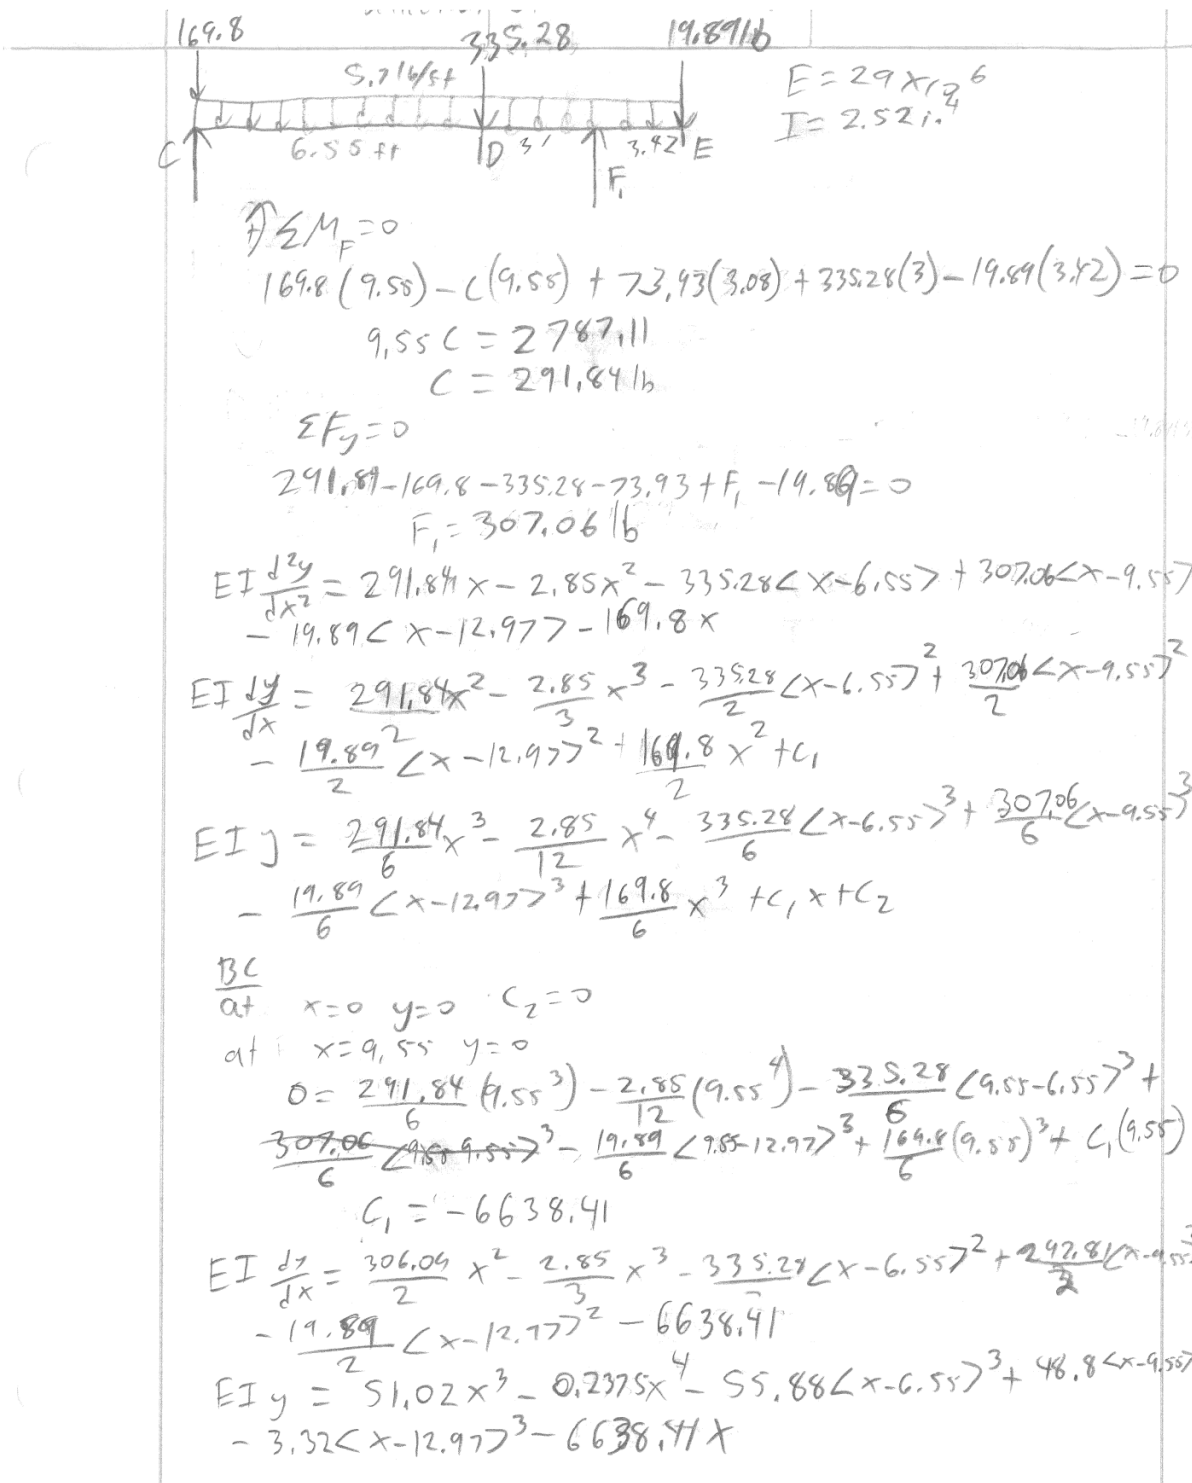 169.8 335.28 19.89lb
5.7 lb/ft
E = 29 x 10^6
I = 2.52 in.^4
C 6.55 ft D 3' 3.42 E
F₁
↑) ΣM_F = 0
169.8(9.55) - C(9.55) + 73.93(3.08) + 335.28(3) - 19.89(3.42) = 0
9.55 C = 2787.11
C = 291.84 lb
ΣFy = 0
291.84 - 169.8 - 335.28 - 73.93 + F₁ - 19.89 = 0
F₁ = 307.06 lb
EI d²y/dx² = 291.84 x - 2.85x² - 335.28<x-6.55> + 307.06<x-9.55>
- 19.89<x-12.97> - 169.8x
EI dy/dx = 291.84/2 x² - 2.85/3 x³ - 335.28/2 <x-6.55>² + 307.06/2 <x-9.55>²
- 19.89²/2 <x-12.97>² + 169.8/2 x² + C₁
EI y = 291.84/6 x³ - 2.85/12 x⁴ - 335.28/6 <x-6.55>³ + 307.06/6 <x-9.55>³
- 19.89/6 <x-12.97>³ + 169.8/6 x³ + C₁x + C₂
BC
at x=0 y=0 C₂=0
at x=9.55 y=0
0 = 291.84/6 (9.55³) - 2.85/12 (9.55⁴) - 335.28/6 <9.55-6.55>³ +
307.06/6 <9.55-9.55>³ - 19.89/6 <9.55-12.97>³ + 169.8/6 (9.55)³ + C₁(9.55)
C₁ = -6638.41
EI dy/dx = 306.09/2 x² - 2.85/3 x³ - 335.28 <x-6.55>² + 292.81/2 <x-9.55
- 19.89/2 <x-12.97>² - 6638.41
EI y = 51.02x³ - 0.2375x⁴ - 55.88<x-6.55>³ + 48.8<x-9.55>
- 3.32<x-12.97>³ - 6638.41x